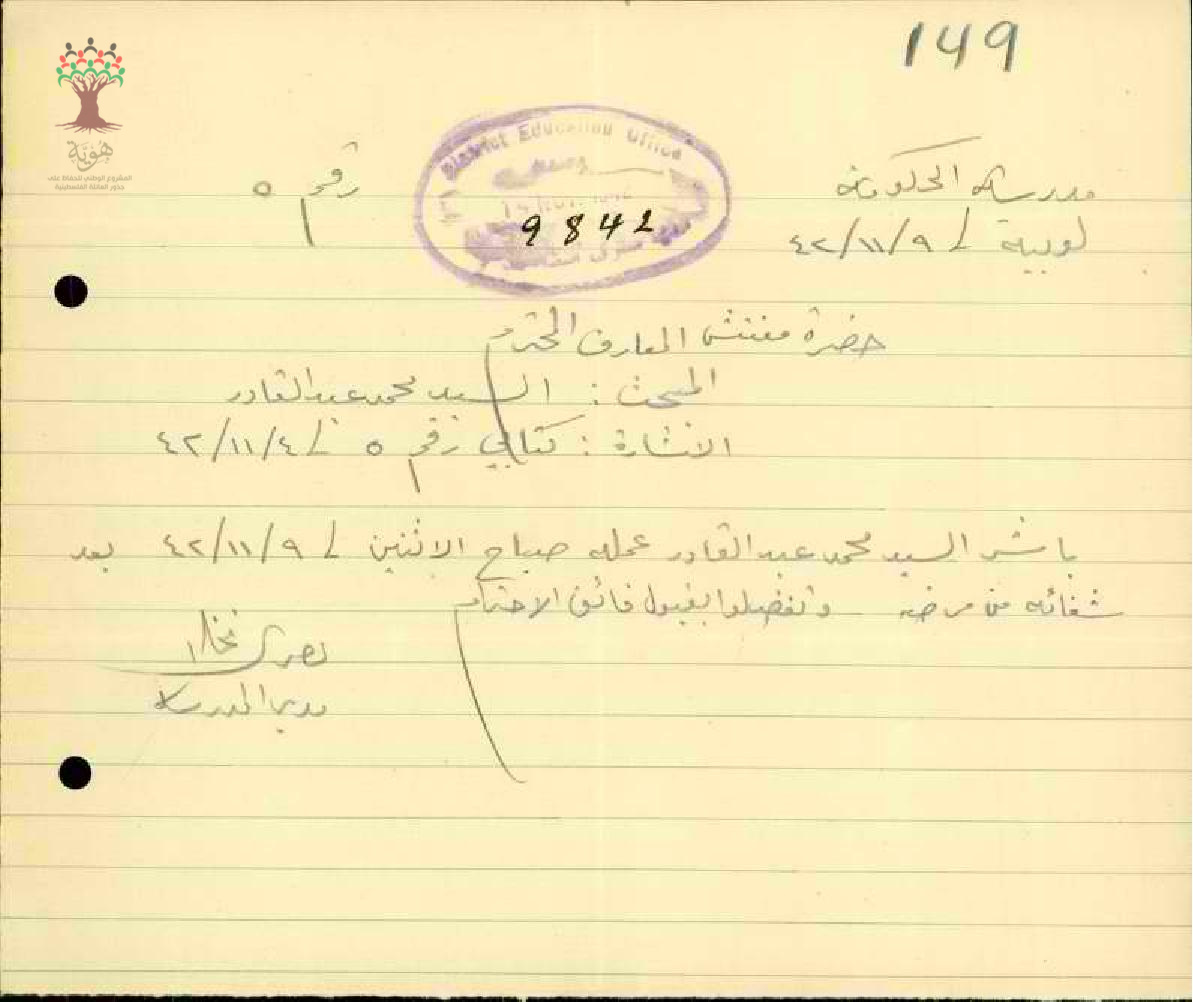 149
هوية
المشروع الوطني للحفاظ على
جذور العائلة الفلسطينية
District Education Office
9842
مدرسة الحكومة
رقم ٥
لوبية في ٩/١١/٤٢
حضرة مفتش المعارف المحترم
المبحث : السيد محمد عبد القادر
الاشارة : كتابي رقم ٥ في ٤/١١/٤٢
باشر السيد محمد عبد القادر عمله صباح الاثنين في ٩/١١/٤٢ بعد
شفائه من مرضه وتفضلوا بقبول فائق الاحترام
مدير المدرسة